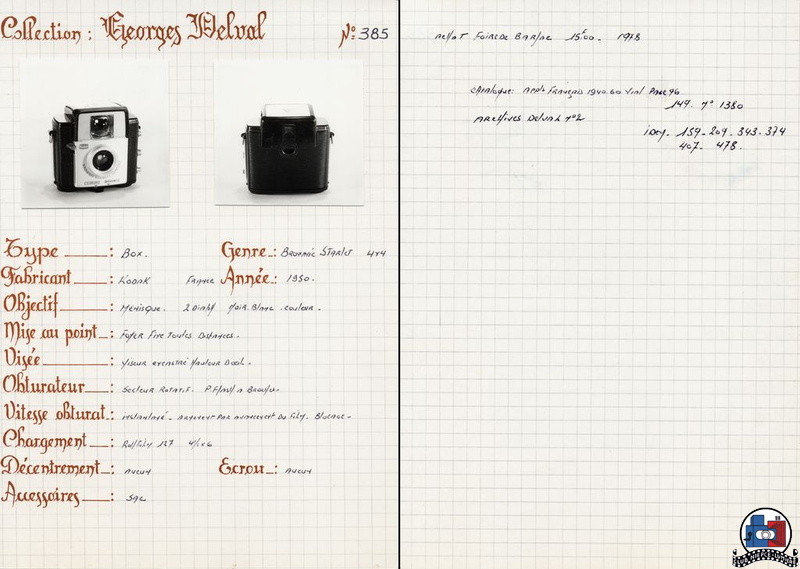 Collection : Georges Delval N° 385
Type : Box.
Genre : Brownie Starlet 4x4
Fabricant : Kodak France
Année : 1950.
Objectif : Menisque. 2 Noir. Blanc. couleur.
Mise au point : Foyer Fixe Toutes Distances.
Visée : Viseur Hauteur D'oeil.
Obturateur : Secteur Rotatif.
Vitesse obturat. : instantané. Par Du Film. Blocage.
Chargement : Rollfilm 127
Décentrement : aucun
Ecrou : aucun
Accessoires : SAC
Achat Foire de 15F00. 1978
Catalogue: Français 1940.60 Vial Page 96
149. n° 1380
Archives Delval n°2
159-209-343.374
407. 478.